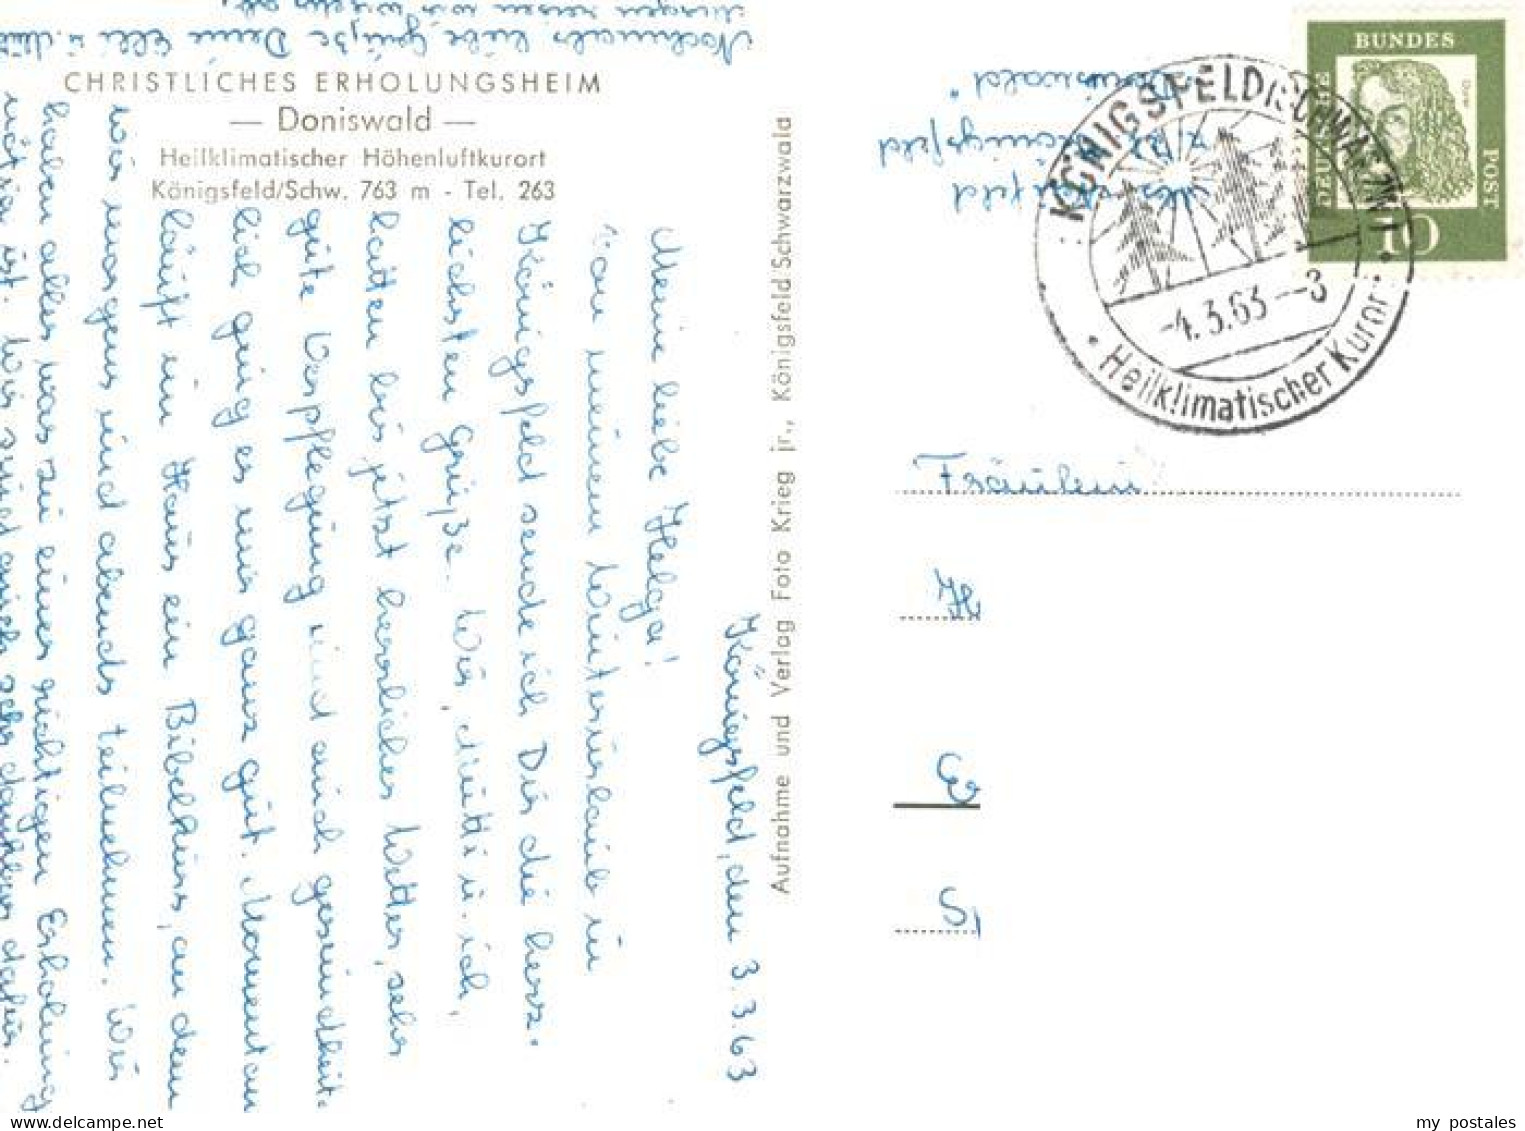 CHRISTLICHES ERHOLUNGSHEIM
— Doniswald —
Heilklimatischer Höhenluftkurort
Königsfeld/Schw. 763 m - Tel. 263
Königsfeld, den 3.3.63
Meine liebe Helga!
Von meinem Winterurlaub in
Königsfeld sende ich Dir die herz-
lichsten Grüße. Wir, Mutti u. ich,
hatten bis jetzt herrliches Wetter, sehr
gute Verpflegung und auch gesundheit-
lich ging es uns ganz gut. Momentan
läuft im Haus ein Bibelkurs, an dem
wir morgens und abends teilnehmen. Wir
haben alles was zu einer richtigen Erholung
nötig ist. Wir sind auch sehr dankbar dafür.
Morgen reisen wir wieder ab.
Nochmals liebe Grüße Deine Elli u. Mutti
Aufnahme und Verlag Foto Krieg jr., Königsfeld/Schwarzwald
Doniswald"
Königsfeld
KÖNIGSFELD (SCHWARZW)
-4.3.63--3
Heilklimatischer Kurort
DEUTSCHE
BUNDES
POST
Dürer
10
Fräulein
H
G
S
my postales